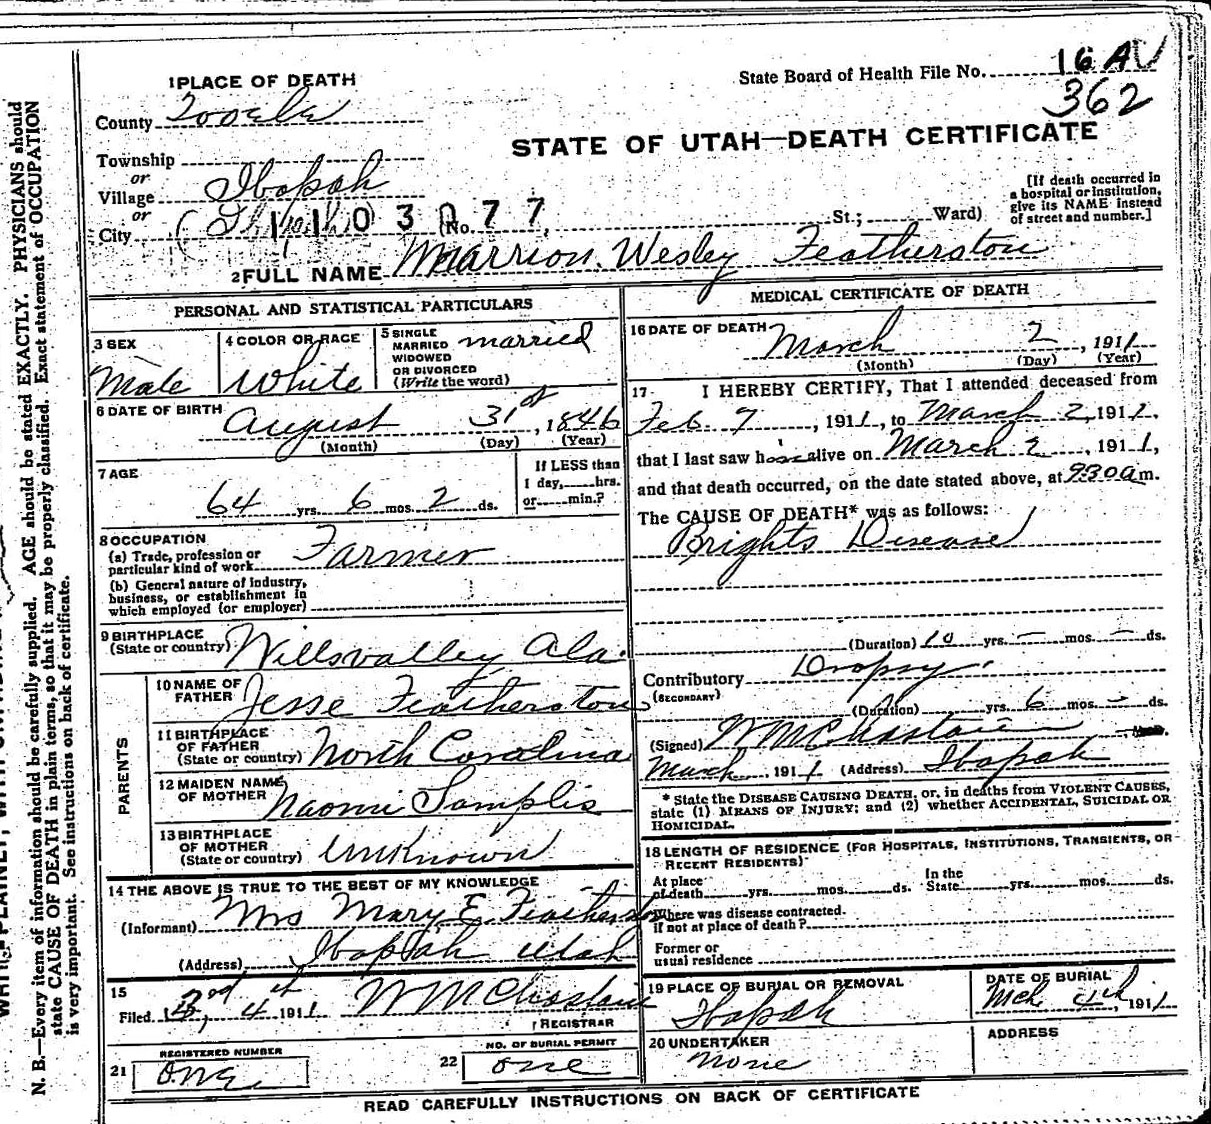 1 PLACE OF DEATH
State Board of Health File No. 16 AV
362
County Tooele
STATE OF UTAH—DEATH CERTIFICATE
Township
or
Village Ibapah
or
City ( 1103077 No. St.; Ward)
[If death occurred in a hospital or institution, give its NAME instead of street and number.]
2 FULL NAME Marrion Wesley Featherston
PERSONAL AND STATISTICAL PARTICULARS
3 SEX Male
4 COLOR OR RACE White
5 SINGLE MARRIED WIDOWED OR DIVORCED (Write the word) married
6 DATE OF BIRTH August 31st, 1846
(Month) (Day) (Year)
7 AGE
64 yrs. 6 mos. 2 ds.
If LESS than 1 day, hrs. or min.?
8 OCCUPATION
(a) Trade, profession or particular kind of work Farmer
(b) General nature of industry, business, or establishment in which employed (or employer)
9 BIRTHPLACE (State or country) Willsvalley Ala.
PARENTS
10 NAME OF FATHER Jesse Featherston
11 BIRTHPLACE OF FATHER (State or country) North Carolina
12 MAIDEN NAME OF MOTHER Naomi Samplis
13 BIRTHPLACE OF MOTHER (State or country) Unknown
14 THE ABOVE IS TRUE TO THE BEST OF MY KNOWLEDGE
(Informant) Mrs Mary E. Featherston
(Address) Ibapah Utah
15
Filed 4th 1911 W M Chastain
REGISTRAR
REGISTERED NUMBER
21 One
NO. OF BURIAL PERMIT
22 one
MEDICAL CERTIFICATE OF DEATH
16 DATE OF DEATH March 2, 1911
(Month) (Day) (Year)
17 I HEREBY CERTIFY, That I attended deceased from
Feb. 7, 1911, to March 2, 1911,
that I last saw h alive on March 2, 1911,
and that death occurred, on the date stated above, at 9:30 a m.
The CAUSE OF DEATH* was as follows:
Brights Disease
(Duration) 10 yrs. — mos. — ds.
Contributory (SECONDARY) Dropsy
(Duration) yrs. 6 mos. — ds.
(Signed) W M Chastain
March, 1911 (Address) Ibapah
* State the DISEASE CAUSING DEATH, or, in deaths from VIOLENT CAUSES,
state (1) MEANS OF INJURY; and (2) whether ACCIDENTAL, SUICIDAL OR
HOMICIDAL.
18 LENGTH OF RESIDENCE (FOR HOSPITALS, INSTITUTIONS, TRANSIENTS, OR RECENT RESIDENTS)
At place of death yrs. mos. ds. In the State yrs. mos. ds.
Where was disease contracted, if not at place of death?
Former or usual residence
19 PLACE OF BURIAL OR REMOVAL Ibapah
DATE OF BURIAL Mch. 4th, 1911
20 UNDERTAKER None
ADDRESS
READ CAREFULLY INSTRUCTIONS ON BACK OF CERTIFICATE
N. B.—Every item of information should be carefully supplied. AGE should be stated EXACTLY. PHYSICIANS should
state CAUSE OF DEATH in plain terms, so that it may be properly classified. Exact statement of OCCUPATION
is very important. See instructions on back of certificate.